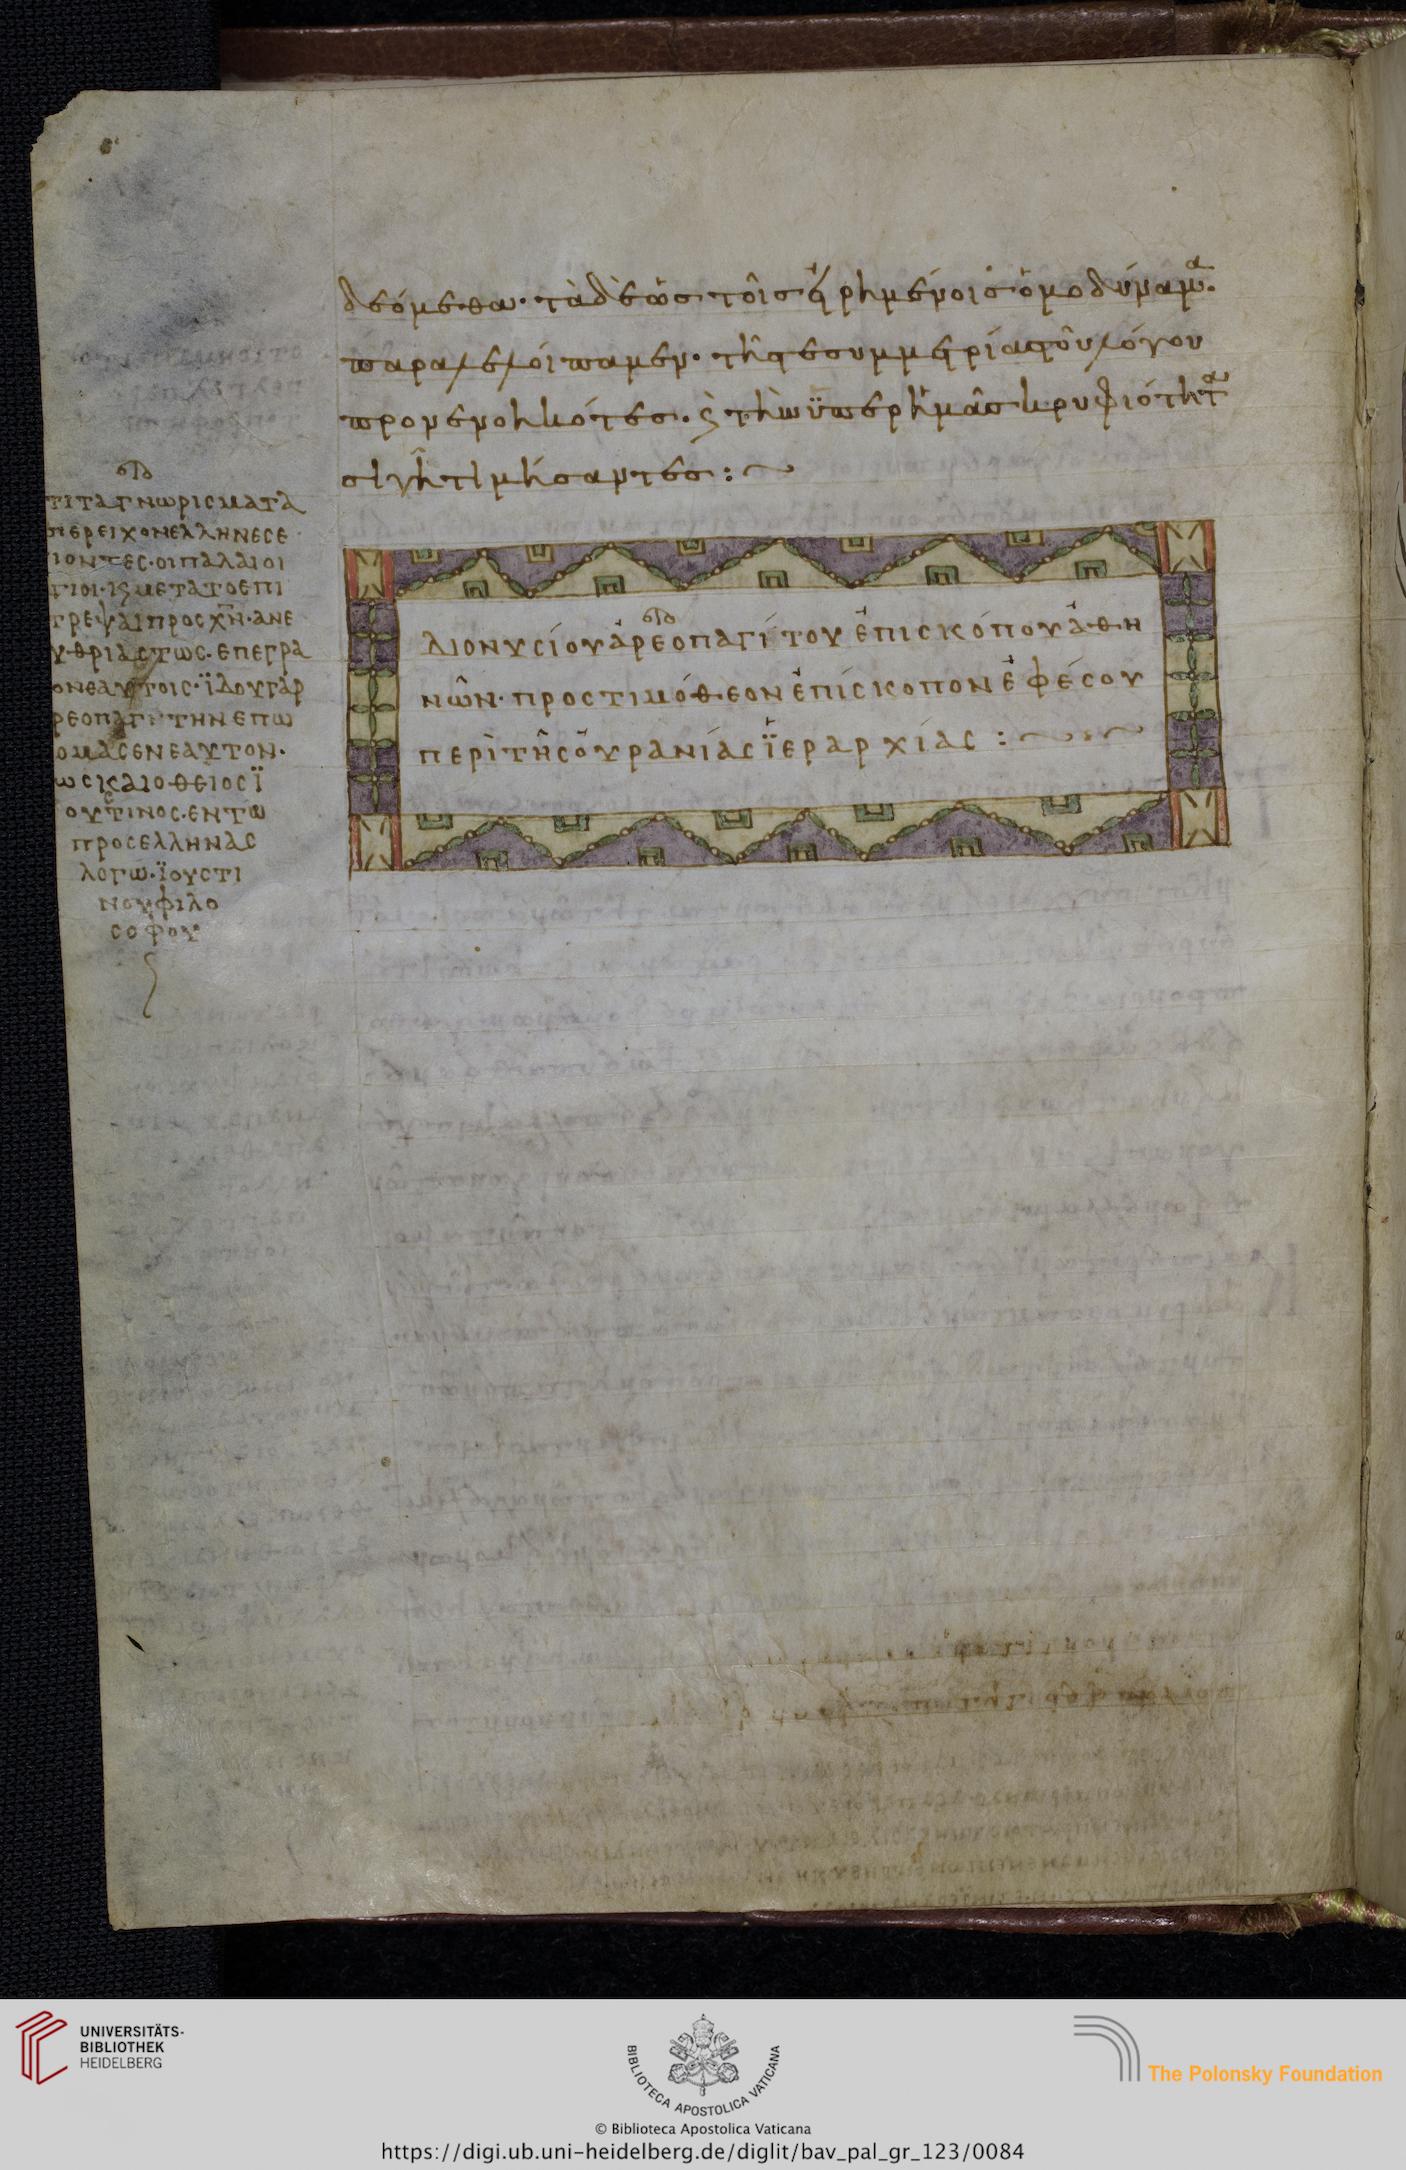 δεόμεθα· τὰδὲὡς τοῖς εἰρημένοις ὁμοδύναμα·
παραλελοίπαμεν· τῆςσυμμετρίας τοῦ λόγου
προνενοηκότες· ϛ τὴν ὑπὲρ ἡμᾶς κρυφιότητα
σιγῆ τιμήσαντες :~
ΤΙΤΑΓΝΩΡΙΣΜΑΤΑ
ΠΕΡΕΙΧΟΝΕΛΛΗΝΕΣΕ
ΙΟΝΤΕΣ·ΟΙΠΑΛΑΙΟΙ
ΤΙΟΙ·ΚϛΜΕΤΑΤΟΕΠΙ
ΤΡΕΨΑΙΠΡΟΣΧΝ·ΑΝΕ
ΥΘΡΙΑΣΤΩΣ·ΕΠΕΓΡΑ
ΟΝΕΑΥΤΟΙΣ·ΪΔΟΥΓΑΡ
ΡΕΟΠΑΓΙΤΗΝΕΠΩ
ΟΜΑΣΕΝΕΑΥΤΟΝ·
ΩΣΚϛΑΙΟΘΕΙΟΣΪ
ΟΥΣΤΙΝΟΣ·ΕΝΤΩ
ΠΡΟΣΕΛΛΗΝΑΣ
ΛΟΓΩ·ΪΟΥΣΤΙ
ΝΟΥΦΙΛΟ
ΣΟΦΟΥ
ΔΙΟΝΥΣΊΟΥἈΡΕΟΠΑΓΊΤΟΥ ἘΠΙΣΚΌΠΟΥἈΘΗ
ΝΩ͂Ν· ΠΡΟΣΤΙΜΌΘΕΟΝἘΠΊΣΚΟΠΟΝἘΦΈΣΟΥ
ΠΕΡῚΤΗ͂ΣΟὐΡΑΝΊΑΣἹΕΡΑΡΧΊΑΣ :~
UNIVERSITÄTS-
BIBLIOTHEK
HEIDELBERG
BIBLIOTECA APOSTOLICA VATICANA
The Polonsky Foundation
© Biblioteca Apostolica Vaticana
https://digi.ub.uni-heidelberg.de/diglit/bav_pal_gr_123/0084